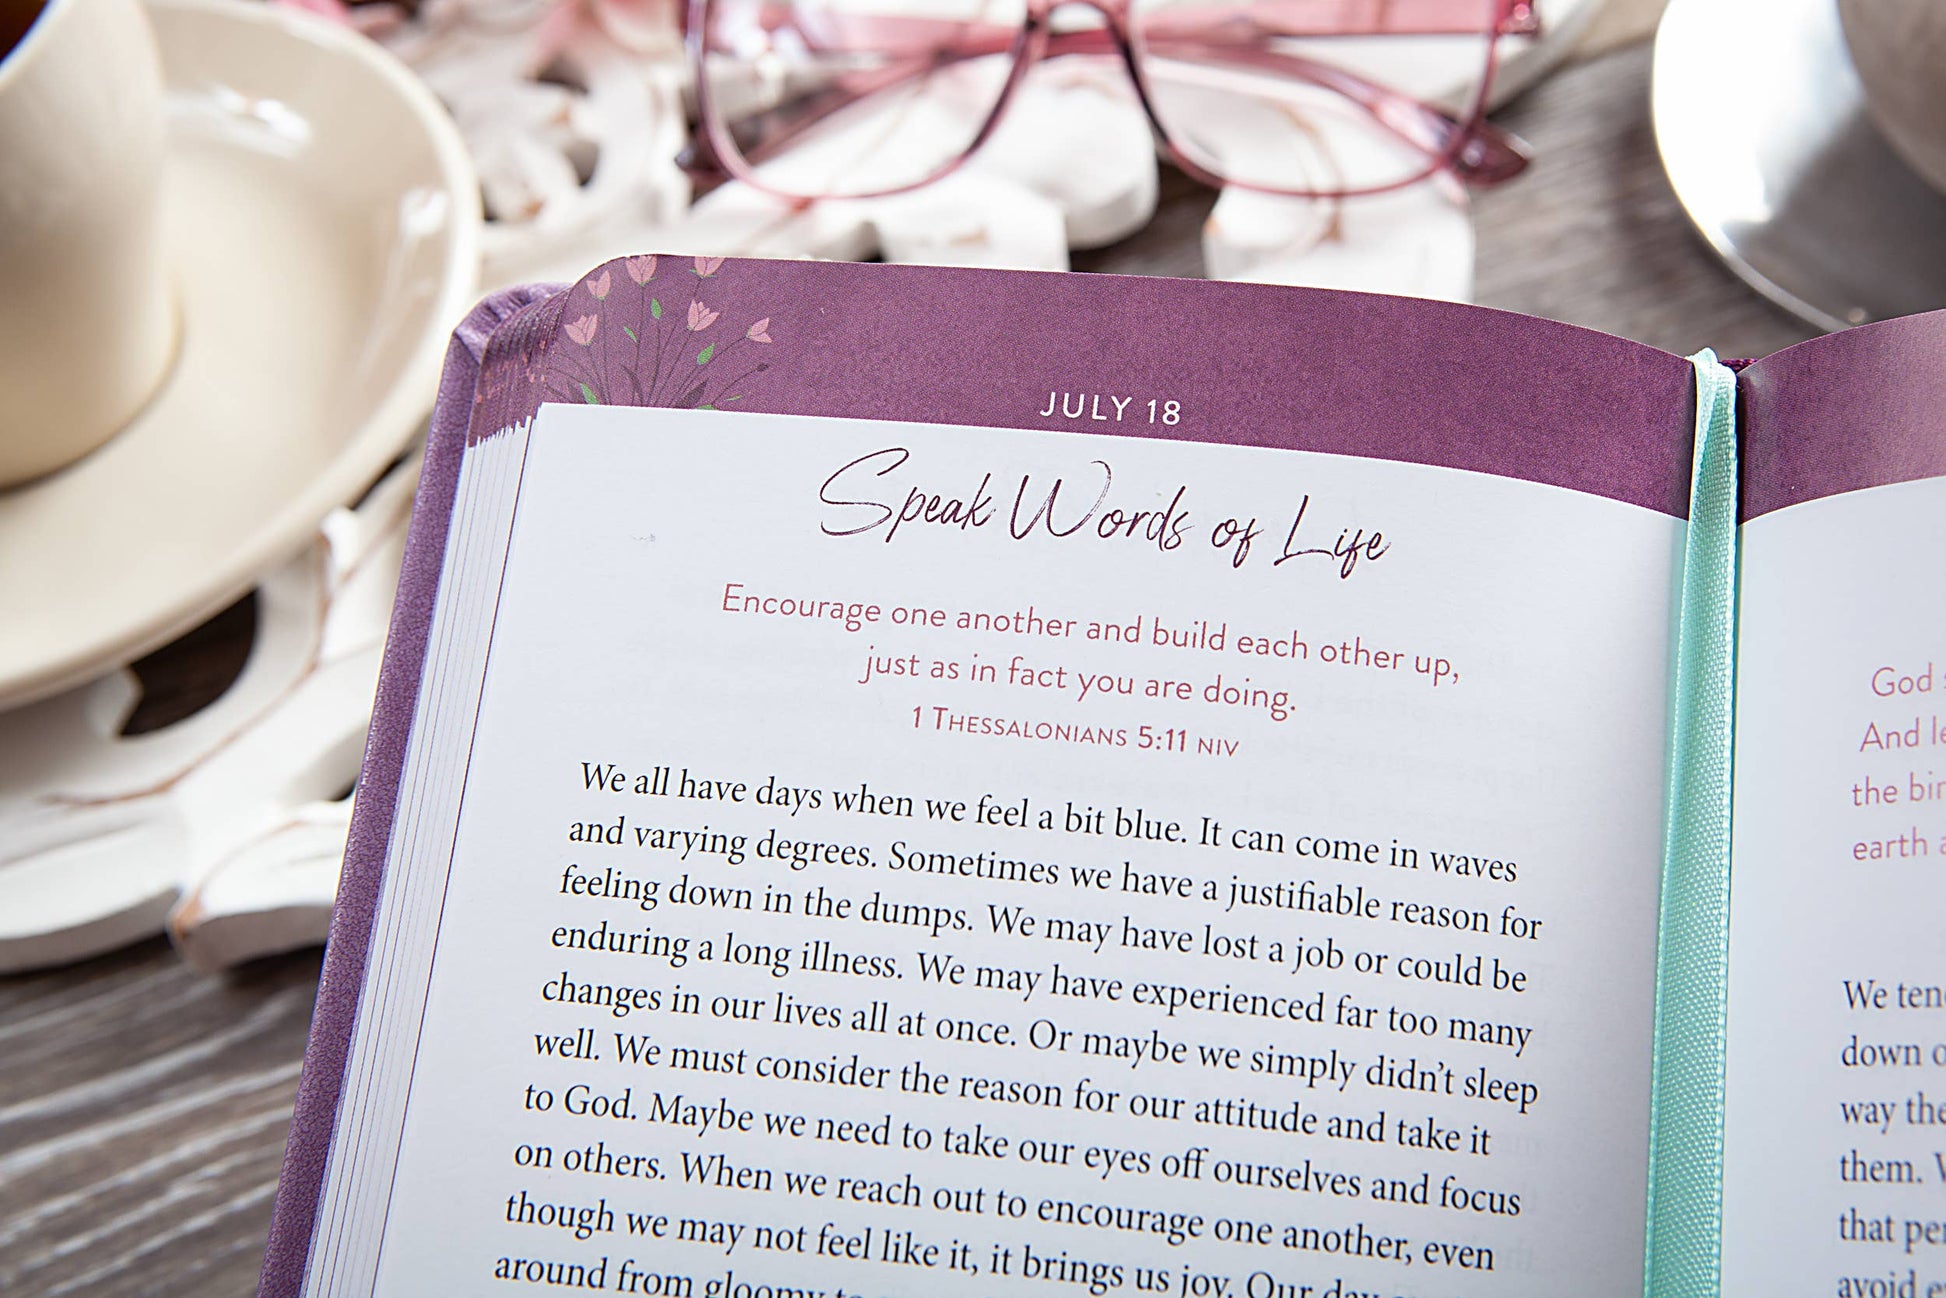 JULY 18
Speak Words of Life
Encourage one another and build each other up,
just as in fact you are doing.
1 THESSALONIANS 5:11 NIV
We all have days when we feel a bit blue. It can come in waves
and varying degrees. Sometimes we have a justifiable reason for
feeling down in the dumps. We may have lost a job or could be
enduring a long illness. We may have experienced far too many
changes in our lives all at once. Or maybe we simply didn’t sleep
well. We must consider the reason for our attitude and take it
to God. Maybe we need to take our eyes off ourselves and focus
on others. When we reach out to encourage one another, even
though we may not feel like it, it brings us joy. Our
around from gloomy
God
And
the
earth
We
down
way
them.
that
avoid